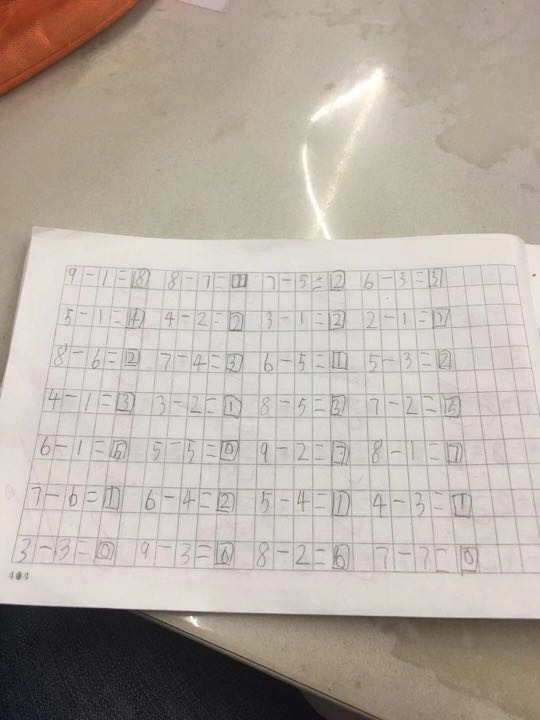 9-1=8 8-7=1 7-5=2 6-3=3
5-1=4 4-2=2 3-1=2 2-1=2
8-6=2 7-4=3 6-5=1 5-3=2
4-1=3 3-2=1 8-5=3 7-2=5
6-1=5 5-5=0 9-2=7 8-1=7
7-6=1 6-4=2 5-4=1 4-3=1
3-3=0 9-3=6 8-2=6 7-7=0